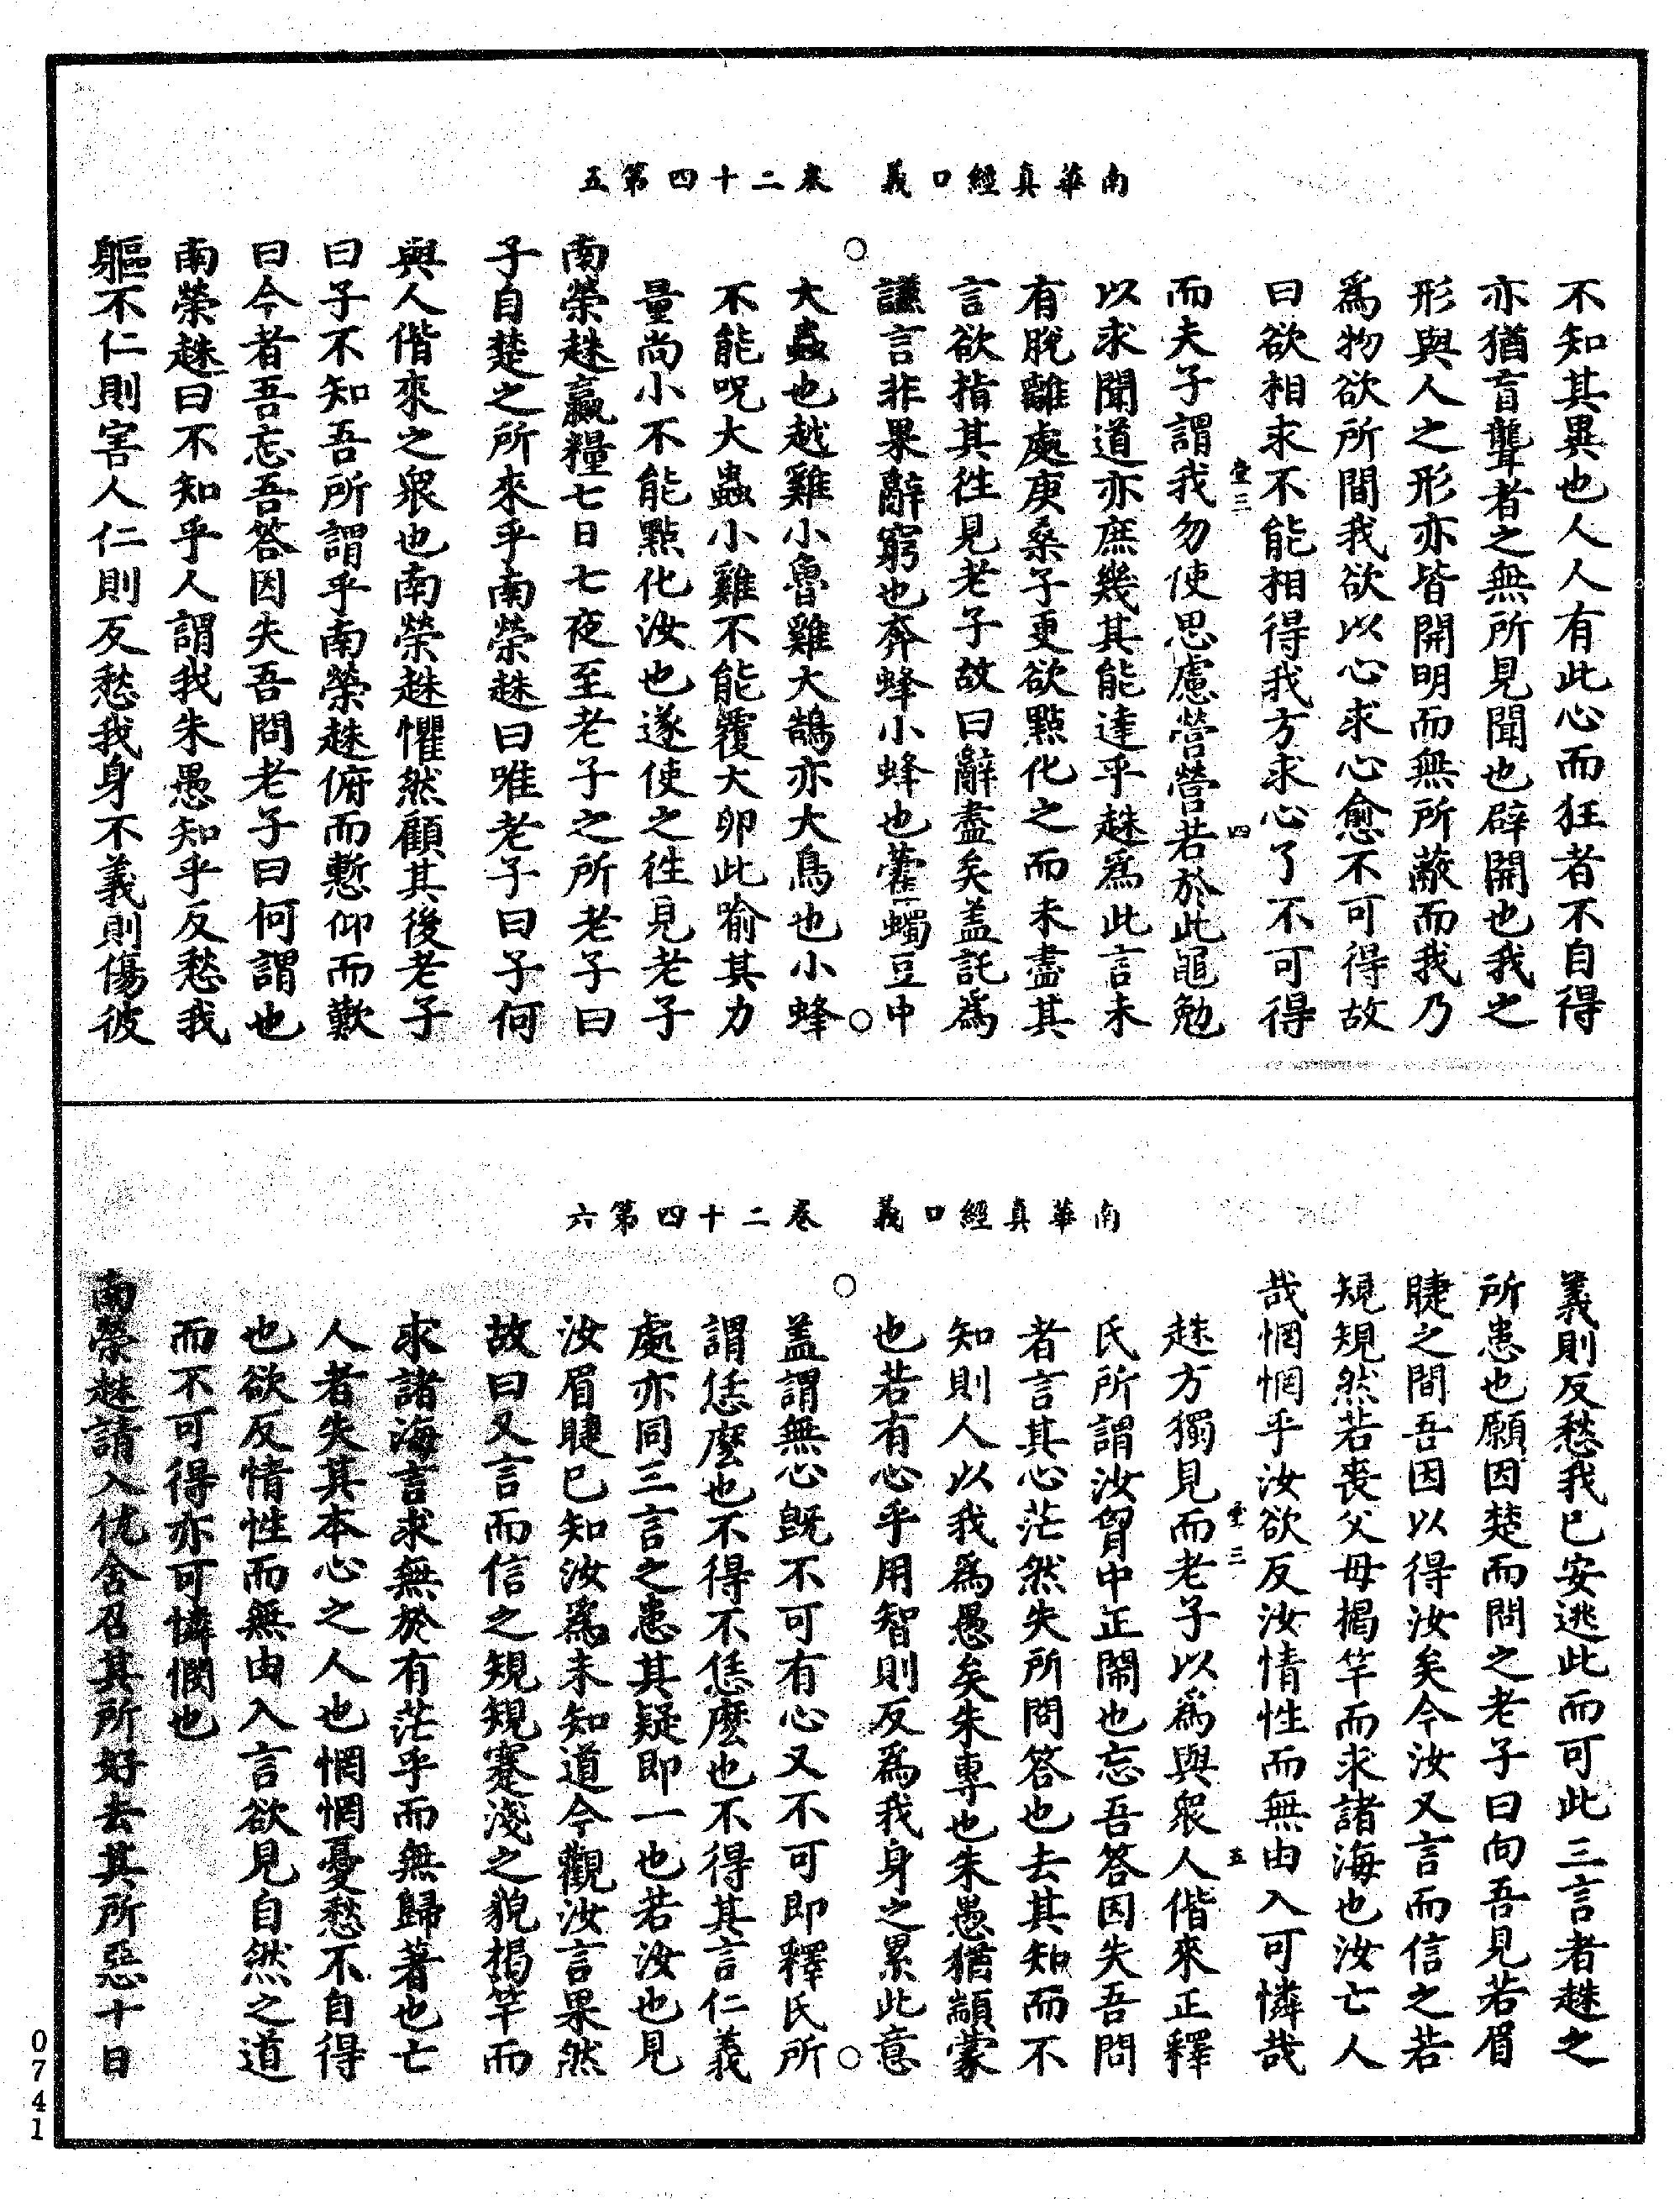 南華真經口義　卷二十四第五
不知其異也人人有此心而狂者不自得
亦猶盲聾者之無所見聞也辟開也我之
形與人之形亦皆開明而無所蔽而我乃
爲物欲所間我欲以心求心愈不可得故
曰欲相求不能相得我方求心了不可得
堂三　四
而夫子謂我勿使思慮營營若於此黽勉
以求聞道亦庶幾其能達乎趎爲此言未
有脫離處庚桑子更欲點化之而未盡其
言欲指其徃見老子故曰辭盡矣盖託爲
謙言非果辭窮也奔蜂小蜂也藿蠋豆中
大蟲也越雞小魯雞大鵠亦大鳥也小蜂
不能呪大蟲小雞不能覆大卵此喻其力
量尚小不能點化汝也遂使之徃見老子
南榮趎贏糧七日七夜至老子之所老子曰
子自楚之所來乎南榮趎曰唯老子曰子何
與人偕來之衆也南榮趎懼然顧其後老子
曰子不知吾所謂乎南榮趎俯而慙仰而歎
曰今者吾忘吾答因失吾問老子曰何謂也
南榮趎曰不知乎人謂我朱愚知乎反愁我
軀不仁則害人仁則反愁我身不義則傷彼
南華真經口義　卷二十四第六
義則反愁我已安逃此而可此三言者趎之
所患也願因楚而問之老子曰向吾見若眉
睫之間吾因以得汝矣今汝又言而信之若
規規然若喪父母揭竿而求諸海也汝亡人
哉惘惘乎汝欲反汝情性而無由入可憐哉
堂三　五
趎方獨見而老子以爲與衆人偕來正釋
氏所謂汝胷中正鬧也忘吾答因失吾問
者言其心茫然失所問答也去其知而不
知則人以我爲愚矣朱專也朱愚猶顓蒙
也若有心乎用智則反爲我身之累此意
盖謂無心旣不可有心又不可即釋氏所
謂恁麼也不得不恁麼也不得其言仁義
處亦同三言之患其疑即一也若汝也見
汝眉睫已知汝爲未知道今觀汝言果然
故曰又言而信之規規蹇淺之貌揭竿而
求諸海言求無於有茫乎而無歸著也亡
人者失其本心之人也惘惘憂愁不自得
也欲反情性而無由入言欲見自然之道
而不可得亦可憐憫也
南榮趎請入就舍召其所好去其所惡十日
0741